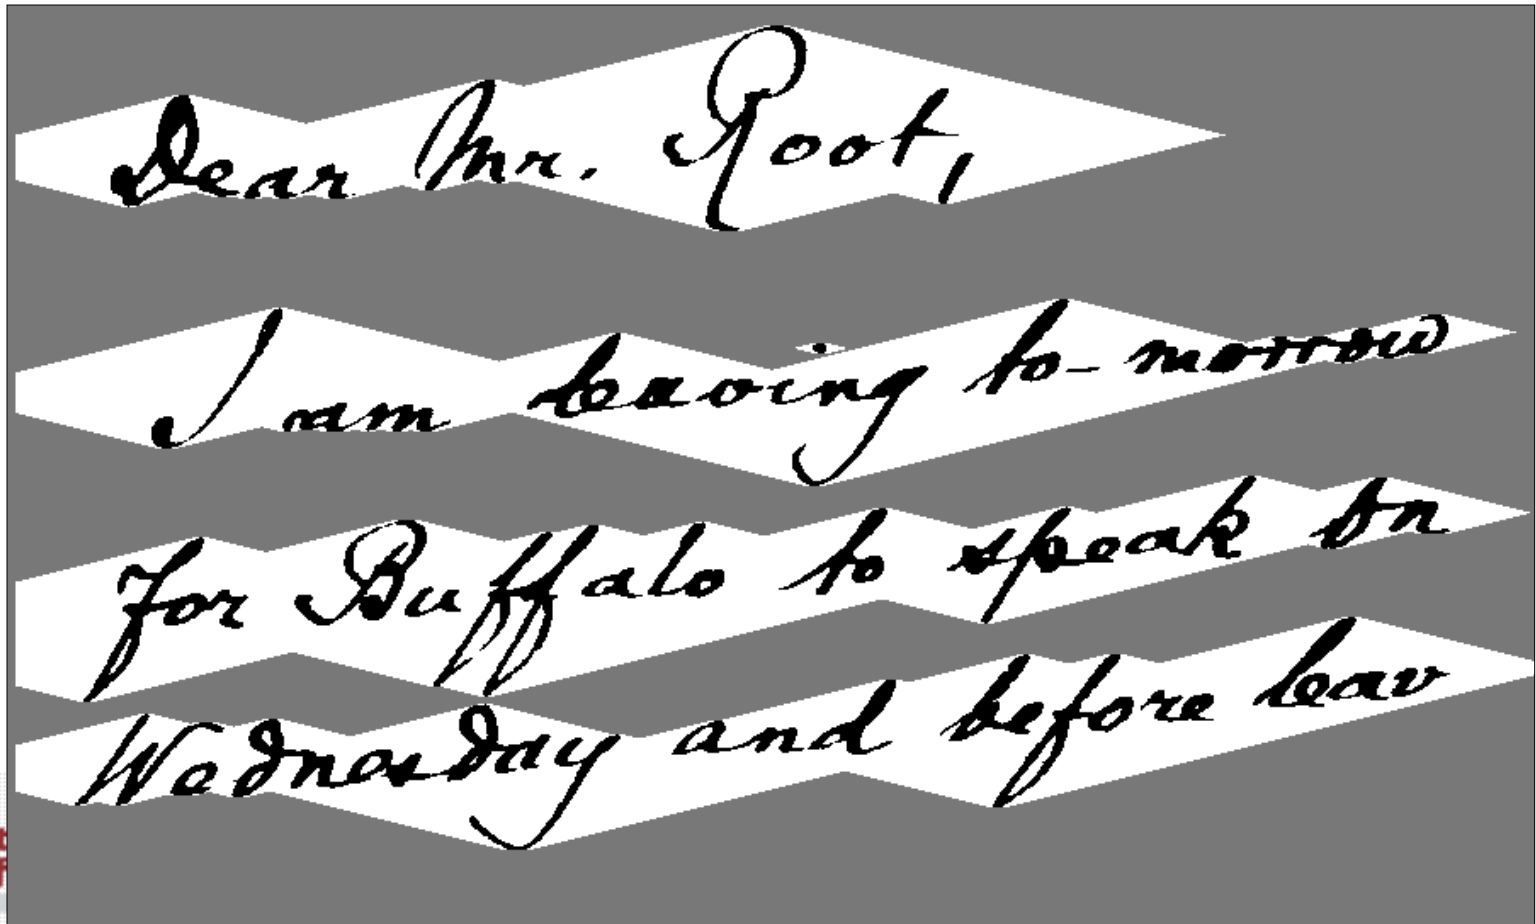 Dear Mr. Root,
I am leaving to-morrow
for Buffalo to speak on
Wednesday and before leav